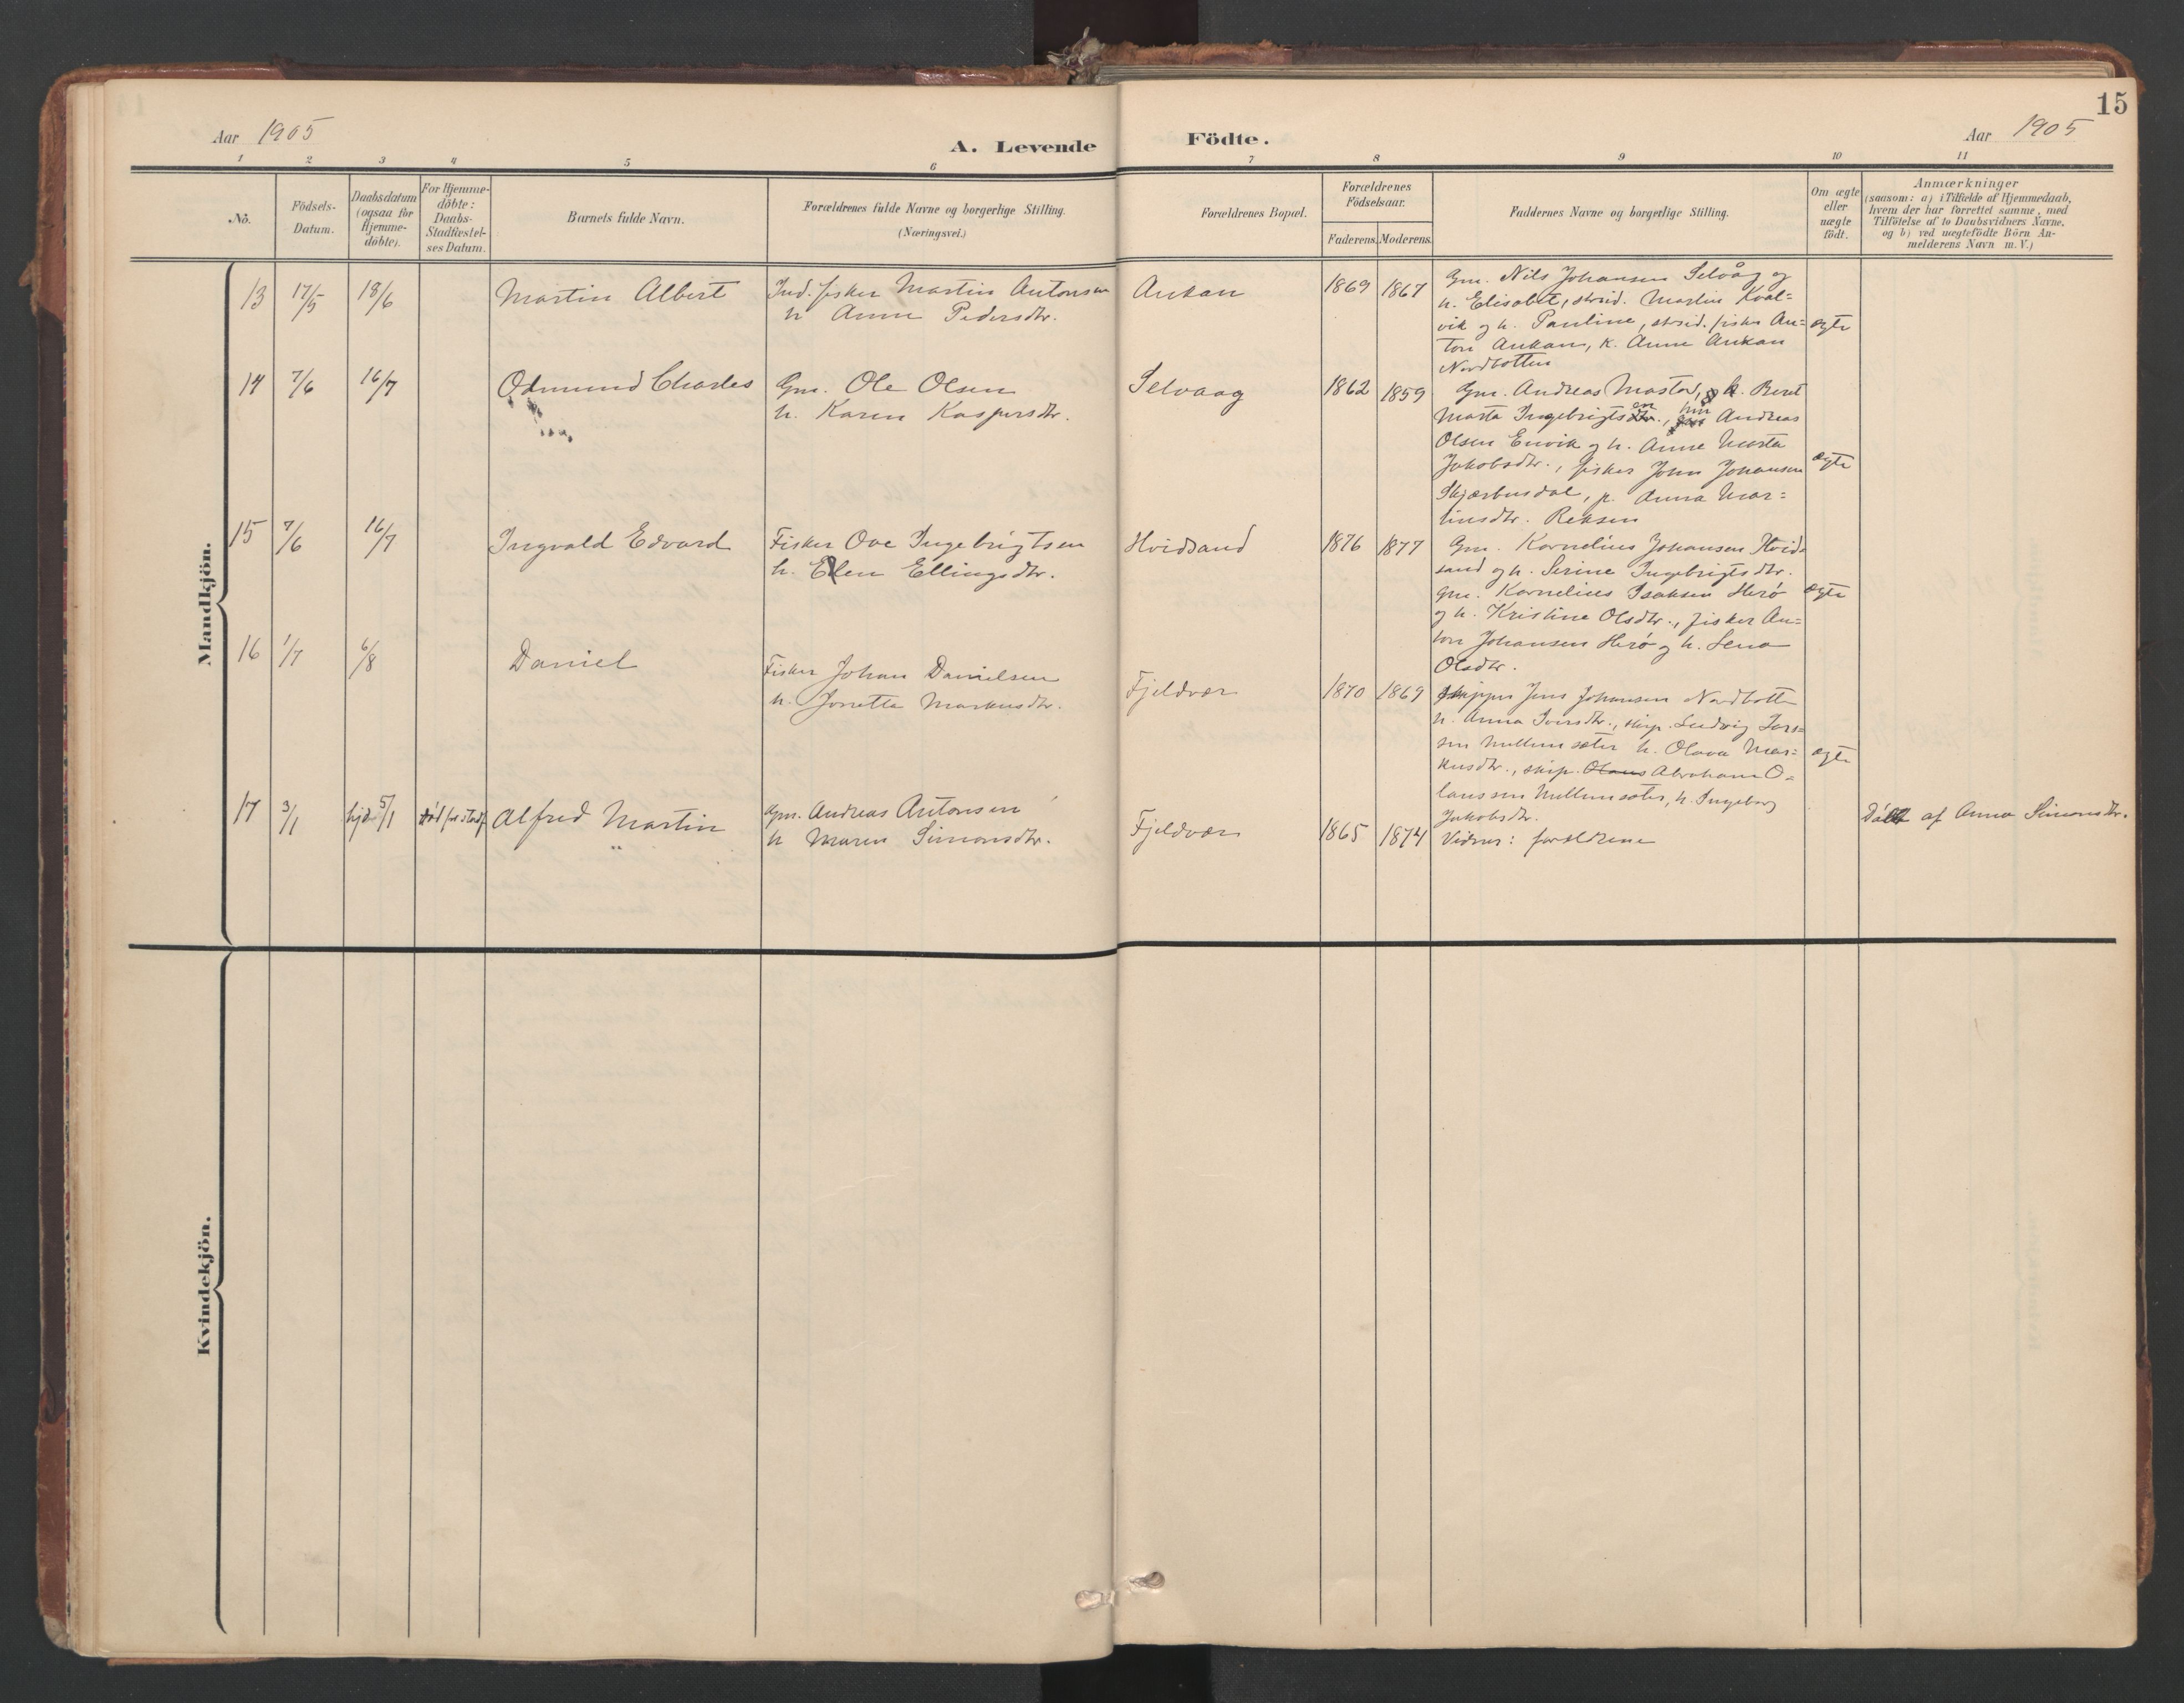 15
Aar 1905
A. Levende Födte.
Aar 1905
1 2 3 4 5 6 7 8 9 10 11
No.
Födsels-
Datum.
Daabsdatum
(ogsaa for
Hjemme-
döbte).
For Hjemme-
döbte:
Daabs-
Stadfæstel-
ses Datum.
Barnets fulde Navn.
Forældrenes fulde Navne og borgerlige Stilling.
(Næringsvei.)
Forældrenes Bopæl.
Forældrenes
Födselsaar.
Faderens. Moderens.
Faddernes Navne og borgerlige Stilling.
Om ægte
eller
uægte
födt.
Anmærkninger
(saasom: a) i Tilfælde af Hjemmedaab,
hvem der har forrettet samme, med
Tilföielse af to Daabsvidners Navne,
og b) ved uægtefödte Börn An-
melderens Navn m. V.)
Mandkjön.
13 17/5 18/6 Martin Albert
Ind. fisker Martin Antonsen
h Anne Pedersdtr.
Ankan 1869 1867
Gm. Nils Johansen Selvåg og
h. Elisabet, strsid. Martin Kval=
vik og h. Pauline, strsid. fisker An=
ton Ankan, k. Anne Ankan
Nordbotten
ægte
14 7/6 16/7 Odmund Charles
Gm. Ole Olsen
h. Karen Kaspersdtr.
Selvaag 1862 1859
Gm. Andreas Mastad, og h. Beret
Marta Ingebrigtsdtr., Andreas
Olsen Envik og h. Anne Marta
Jakobsdtr., fisker John Johansen
Skjærbusdal, p. Anna Mar=
tinsdtr. Reksen
ægte
15 7/6 16/7 Ingvald Edvard
Fisker Ove Ingebrigtsen
h. Elen Ellingsdtr.
Hvidsand 1876 1877
Gm. Kornelius Johansen Hvid=
sand og h. Serine Ingebrigtsdtr.
Gm. Kornelius Isaksen Herø
og h. Kristine Olsdtr., fisker An=
ton Johansen Herø og h. Lena
Olsdtr.
ægte
16 1/7 6/8 Daniel
Fisker Johan Danielsen
h. Jonetta Markusdtr.
Fjeldvær 1870 1869
Skipper Jens Johansen Nordbotten
h. Anna Iversdtr., skip. Ludvig Lars=
sen Mellemsæter h. Olava Mar=
kusdtr., skip. Olaus Abraham O=
laussen Mellemsæter, h. Ingeborg
Jakobsdtr.
ægte
17 3/1 hjd. 5/1 død før stadf. Alfred Martin
Gm. Andreas Antonsen
h Maren Simonsdtr.
Fjeldvær 1865 1874
Vidner: forældrene
Døbt af Anna Simonsdtr.
Kvindekjön.